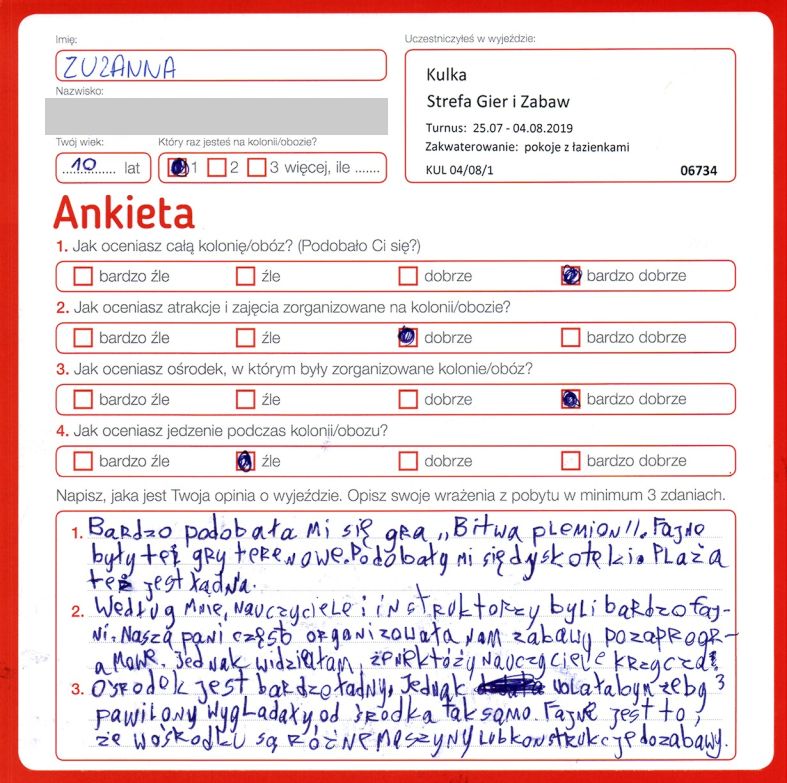 Imię:
ZUZANNA
Nazwisko:
Twój wiek:
10 lat
Który raz jesteś na kolonii/obozie?
1 2 3 więcej, ile .......
Uczestniczyłeś w wyjeździe:
Kulka
Strefa Gier i Zabaw
Turnus: 25.07 - 04.08.2019
Zakwaterowanie: pokoje z łazienkami
KUL 04/08/1 06734
Ankieta
1. Jak oceniasz całą kolonię/obóz? (Podobało Ci się?)
bardzo źle źle dobrze bardzo dobrze
2. Jak oceniasz atrakcje i zajęcia zorganizowane na kolonii/obozie?
bardzo źle źle dobrze bardzo dobrze
3. Jak oceniasz ośrodek, w którym były zorganizowane kolonie/obóz?
bardzo źle źle dobrze bardzo dobrze
4. Jak oceniasz jedzenie podczas kolonii/obozu?
bardzo źle źle dobrze bardzo dobrze
Napisz, jaka jest Twoja opinia o wyjeździe. Opisz swoje wrażenia z pobytu w minimum 3 zdaniach.
1. Bardzo podobała mi się gra „Bitwa plemion”. Fajne
były też gry terenowe. Podobały mi się dyskoteki. Plaża
też jest ładna.
2. Według mnie, nauczyciele i instruktorzy byli bardzo faj-
ni. Nasza pani często organizowała nam zabawy pozaprogr-
amowe. Jednak widziałam, że niektóży nauczyciele krzyczą!
3. Ośrodek jest bardzo ładny. Jednak wolałabym żeby
pawilony wyglądały od środka tak samo. Fajne jest to,
że w ośrodku są różne maszyny lub konstrukcje do zabawy.